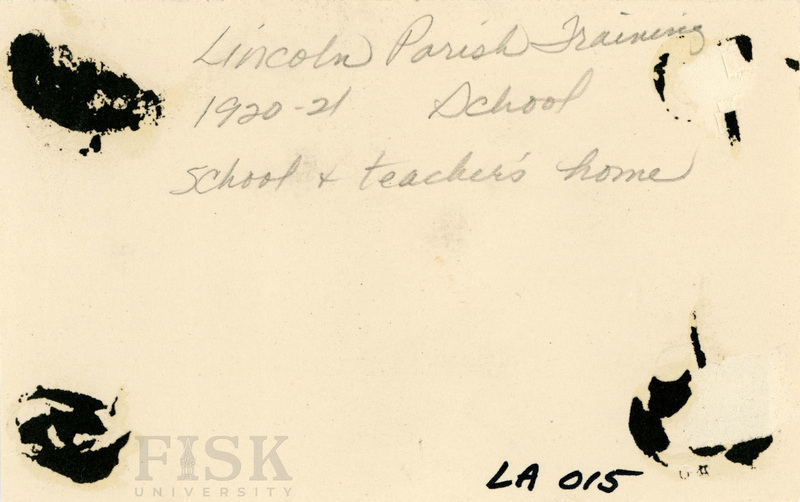 Lincoln Parish Training
1920-21 School
School & teacher's home
FISK
UNIVERSITY
LA 015